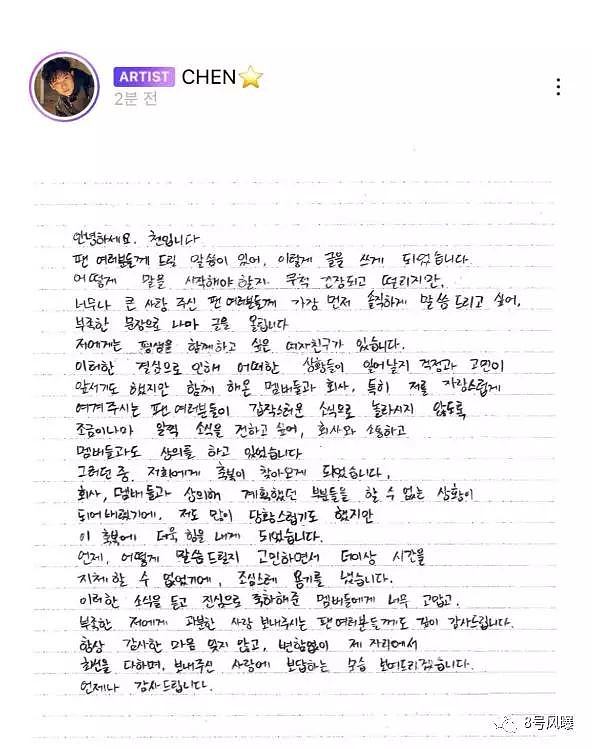 ARTIST CHEN⭐
2분 전
안녕하세요. 첸입니다
팬 여러분들께 드릴 말씀이 있어, 이렇게 글을 쓰게 되었습니다.
어떻게 말을 시작해야 할지 무척 긴장되고 떨리지만,
너무나 큰 사랑 주신 팬 여러분들께 가장 먼저 솔직하게 말씀드리고 싶어,
부족한 문장으로 나마 글을 올립니다
저에게는 평생을 함께하고 싶은 여자친구가 있습니다.
이러한 결심으로 인해 어떠한 상황들이 일어날지 걱정과 고민이
앞서기도 했지만 함께 해온 멤버들과 회사, 특히 저를 자랑스럽게
여겨주시는 팬 여러분들이 갑작스러운 소식으로 놀라시지 않도록
조금이나마 일찍 소식을 전하고 싶어, 회사와 소통하고
멤버들과도 상의를 하고 있었습니다
그러던 중, 저희에게 축복이 찾아오게 되었습니다.
회사, 멤버들과 상의해 계획했던 부분들을 할 수 없는 상황이
되어버렸기에, 저도 많이 당황스럽기도 했지만
이 축복에 더욱 힘을 내게 되었습니다.
언제, 어떻게 말씀드릴지 고민하면서 더이상 시간을
지체할 수 없었기에, 조심스레 용기를 냈습니다.
이러한 소식을 듣고 진심으로 축하해준 멤버들에게 너무 고맙고,
부족한 저에게 과분한 사랑 보내주시는 팬 여러분들께도 깊이 감사드립니다.
항상 감사한 마음 잊지 않고, 변함없이 제 자리에서
최선을 다하며, 보내주신 사랑에 보답하는 모습 보여드리겠습니다.
언제나 감사드립니다.
8号风曝